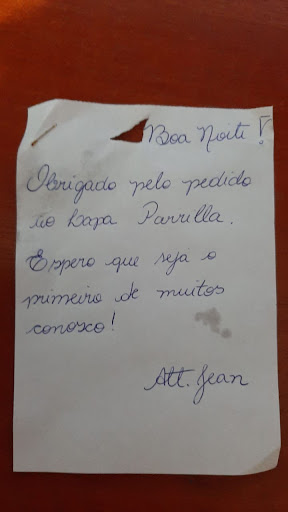 Boa Noite!
Obrigado pelo pedido
no Lapa Parrilla.
Espero que seja o
primeiro de muitos
conosco!
Att. Jean